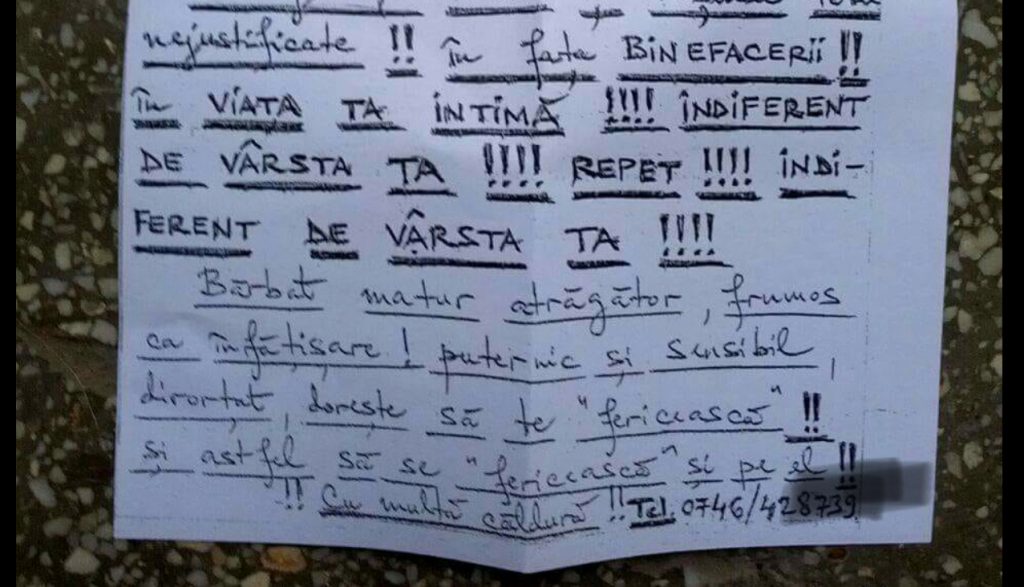 nejustificate !! în fața BINEFACERII !!
în VIATA TA INTIMĂ !!!! INDIFERENT
DE VÂRSTA TA !!!! REPET !!!! INDI-
FERENT DE VÂRSTA TA !!!!
Bărbat matur atrăgător, frumos
ca înfățișare! puternic și sensibil,
divorțat, dorește să te "fericească" !!
și astfel să se "fericească" și pe el !!
!! Cu multă căldură !! Tel. 0746/428739